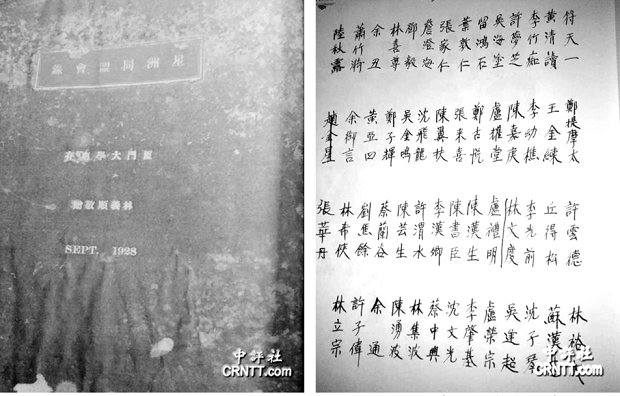 星洲同盟會錄
廈門大學惠存
林義順敬贈
SEPT. 1928
中評社
CRNTT.com
符天一
黃清讀
李竹痴
許夢芝
吳海塗
留鴻石
葉敦仁
張家仁
詹澄海
鄧毅
林喜尊
余丑
蕭竹漪
陸秋露
鄭提摩太
王金練
李幼樵
陳嘉庚
盧耀堂
鄭古悦
張来喜
陳翼扶
沈飛龍
吳金鳴
鄭子輝
黃亞四
余御言
趙金星
許雲德
丘得松
李光前
林文慶
盧禮明
陳漢生
陳書臣
李漢卿
許渭水
陳芸生
蔡蘭谷
劉焦餘
林希俠
張華丹
林裕
蘇漢
沈子琴
吳逢超
盧榮宗
李肇基
沈文光
蔡中興
林集波
陳湧波
余通
許子偉
林立宗
中評社
CRNTT.com